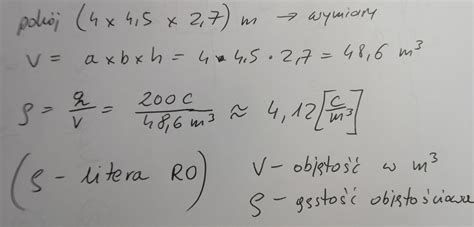 pokój (4 x 4,5 x 2,7) m → wymiary
V = a x b x h = 4 · 4,5 · 2,7 = 48,6 m³
ρ = q/V = 200 C / 48,6 m³ ≈ 4,12 [C/m³]
(ρ - litera RO) V - objętość w m³
ρ - gęstość objętościowa